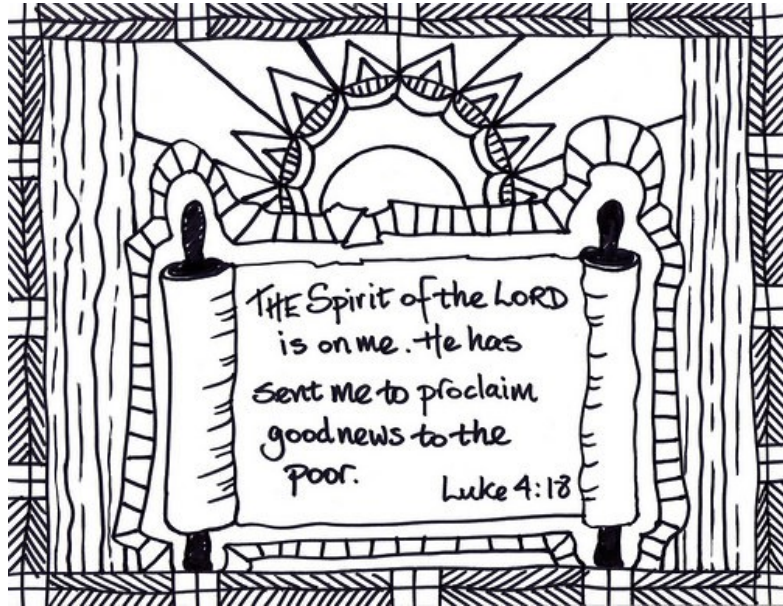 THE Spirit of the LORD
is on me. He has
sent me to proclaim
good news to the
poor.
Luke 4:18